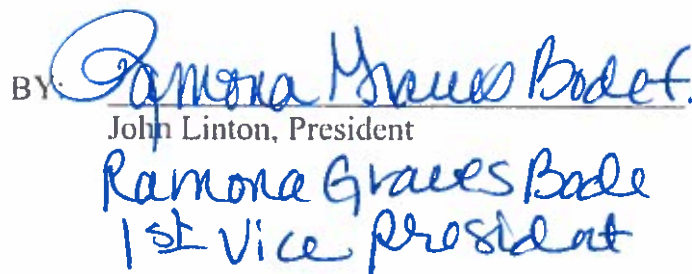 BY: Ramona Graves Bode f.
John Linton, President
Ramona Graves Bode
1st Vice President